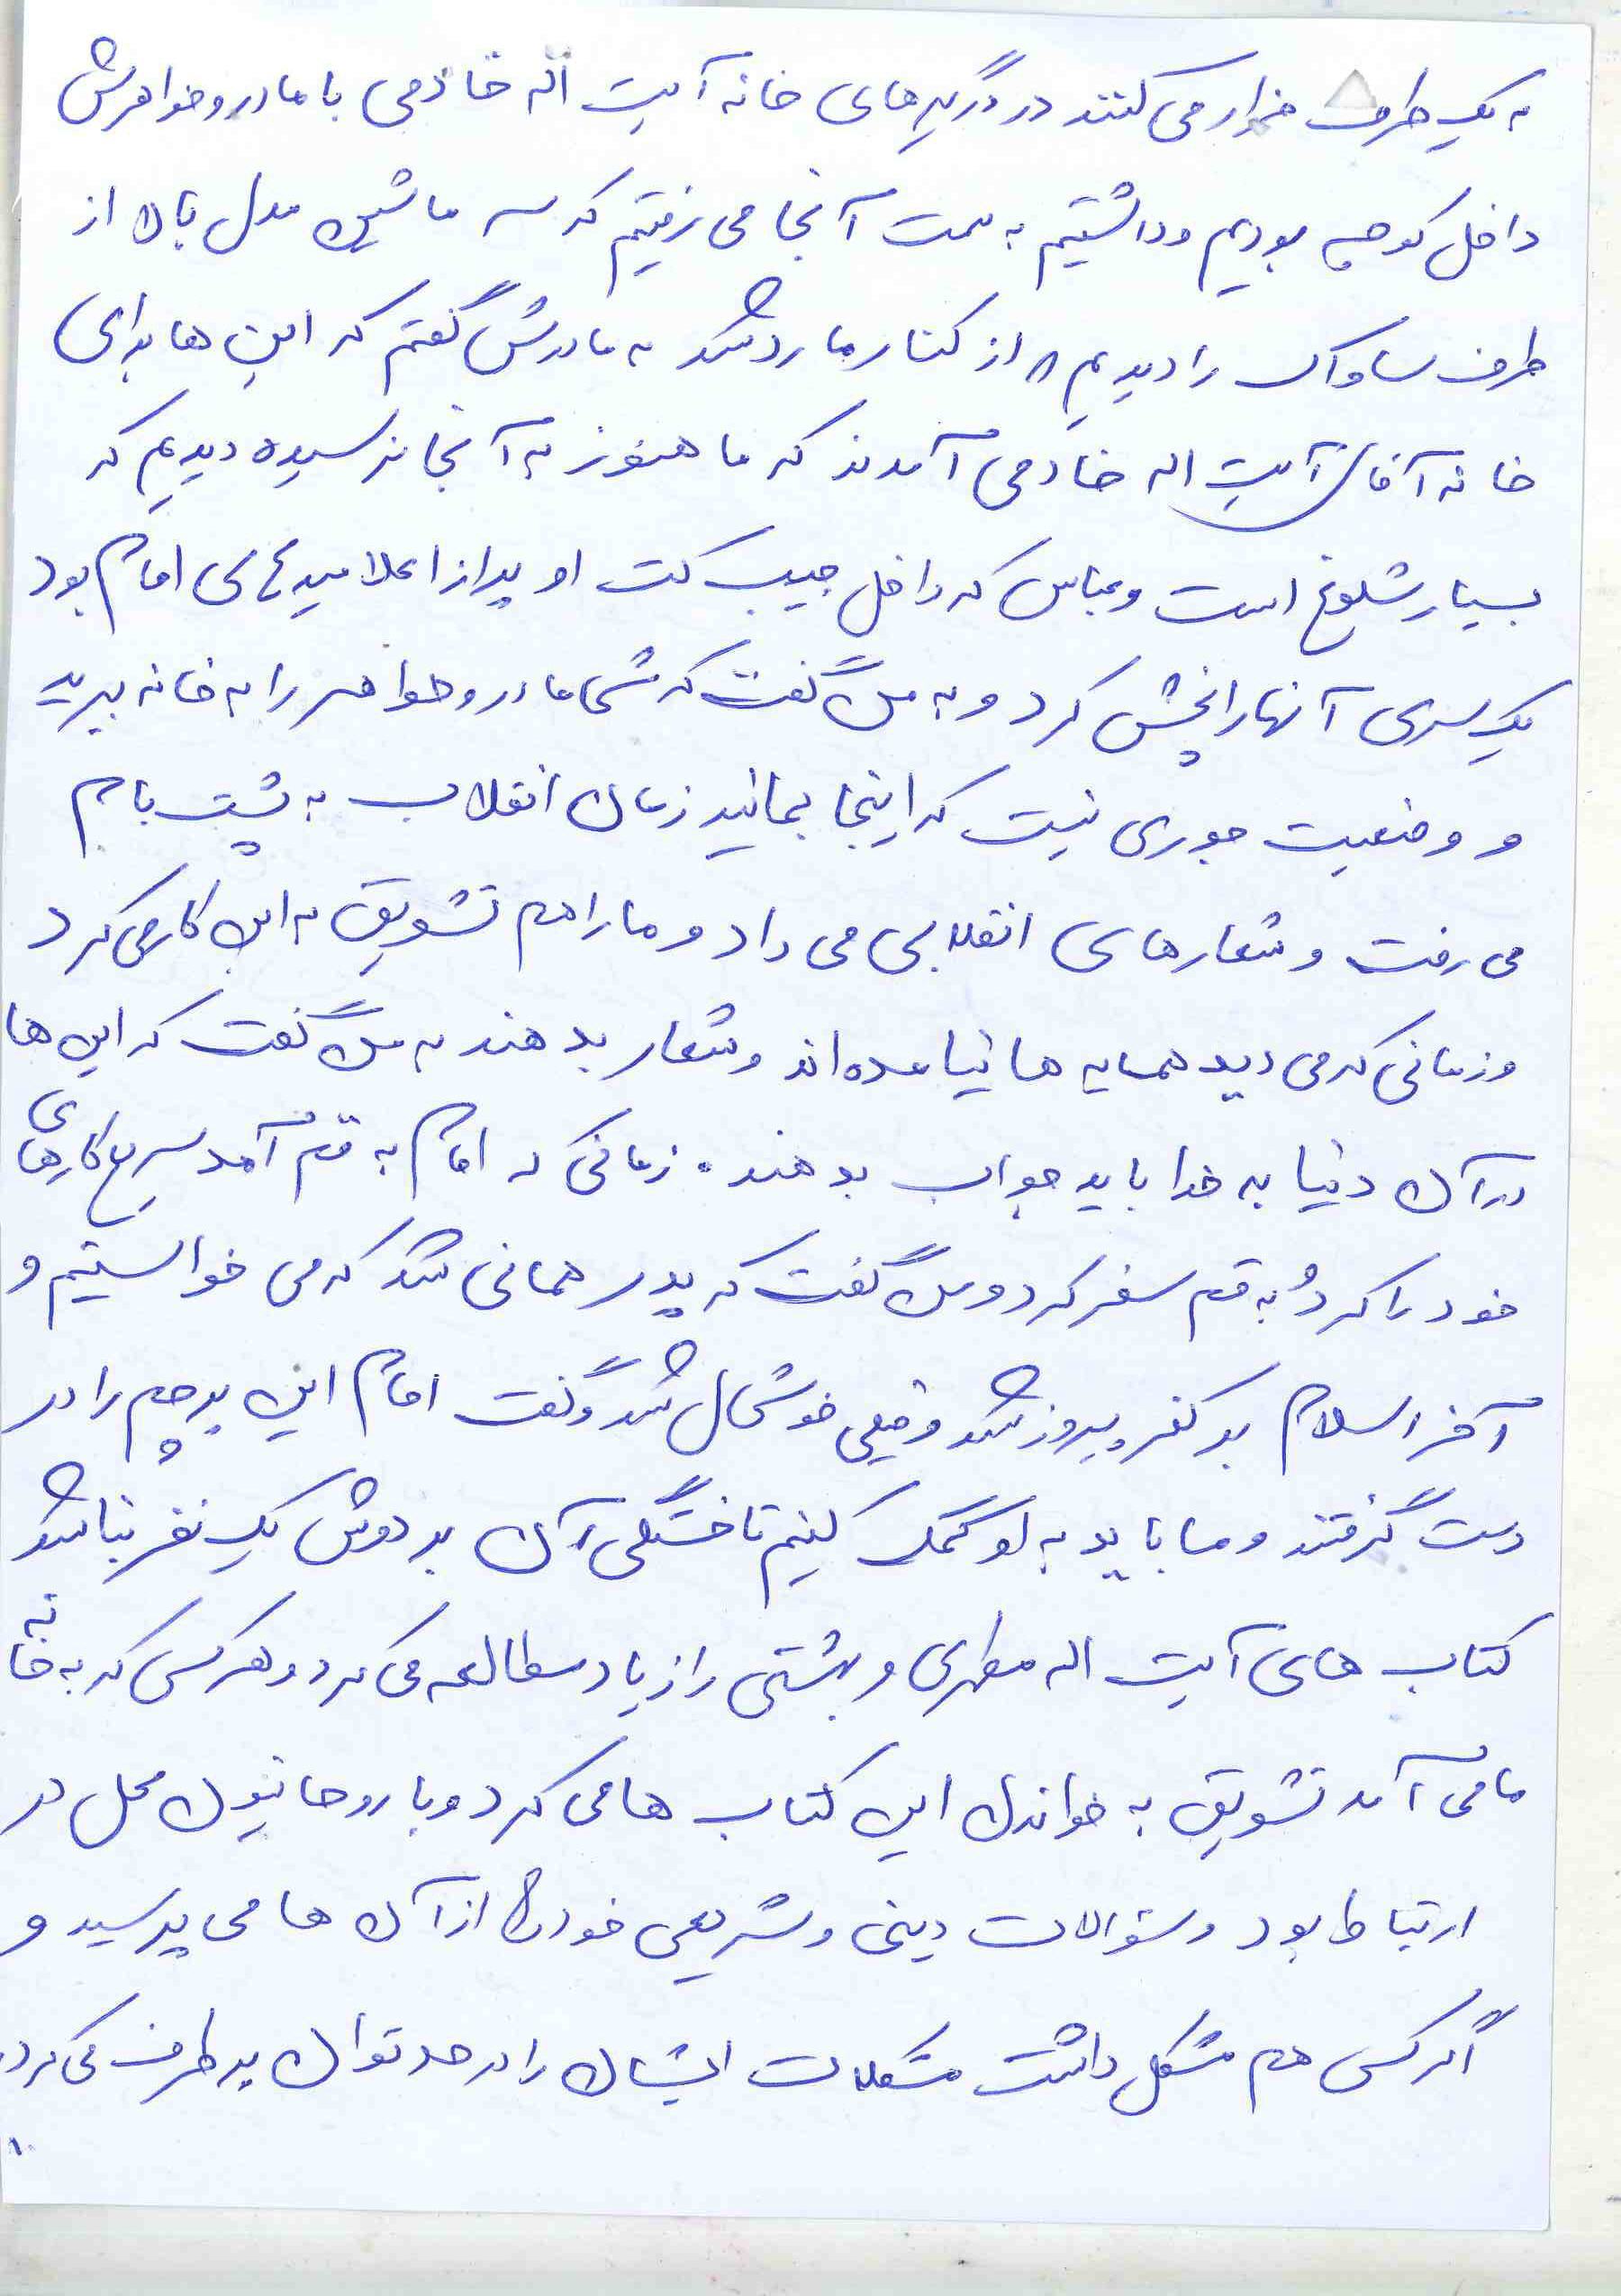 به یک طرف فرار می کنند در درگیریهای خانه آیت اله خادمی با مادر و خواهرش
داخل کوچه بودیم و داشتیم به سمت آنجا می رفتیم که سه ماشین مدل بالا از
طرف ساواک را دیدیم از کنار ما رد شد به مادرش گفتم که این ها برای
خانه آقای آیت اله خادمی آمدند که ما هنوز به آنجا نرسیده دیدیم که
بسیار شلوغ است و عباس که داخل جیب کت او پر از اعلامیه های امام بود
یک سری آنها را پخش کرد و به من گفت که شما مادر و خواهر را به خانه ببرید
و وضعیت جوری نیست که اینجا بمانید زمان انقلاب به پشت بام
می رفت و شعارهای انقلابی می داد و ما را هم تشویق به این کار می کرد
و زمانی که می دید همسایه ها نیامده اند و شعار بدهند به من گفت که این ها
در آن دنیا به خدا باید جواب بدهند . زمانی که امام به قم آمد سریع کارهای
خود را کرد و به قم سفر کرد و من گفت که پدر همانی شد که می خواستیم و
آخر اسلام بر کفر پیروز شد و خیلی خوشحال شد و گفت امام این پرچم را در
دست گرفتند و ما باید به او کمک کنیم تا خستگی آن بر دوش یک نفر نباشد
کتاب های آیت اله مطهری و بهشتی را زیاد مطالعه می کرد و هر کسی که به خانه
ما می آمد تشویق به خواندن این کتاب ها می کرد و با روحانیون محل در
ارتباط بود و سئوالات دینی و شریعی خود را از آن ها می پرسید و
اگر کسی هم مشکل داشت مشکلات ایشان را در حد توان بر طرف می کرد.
۱۰